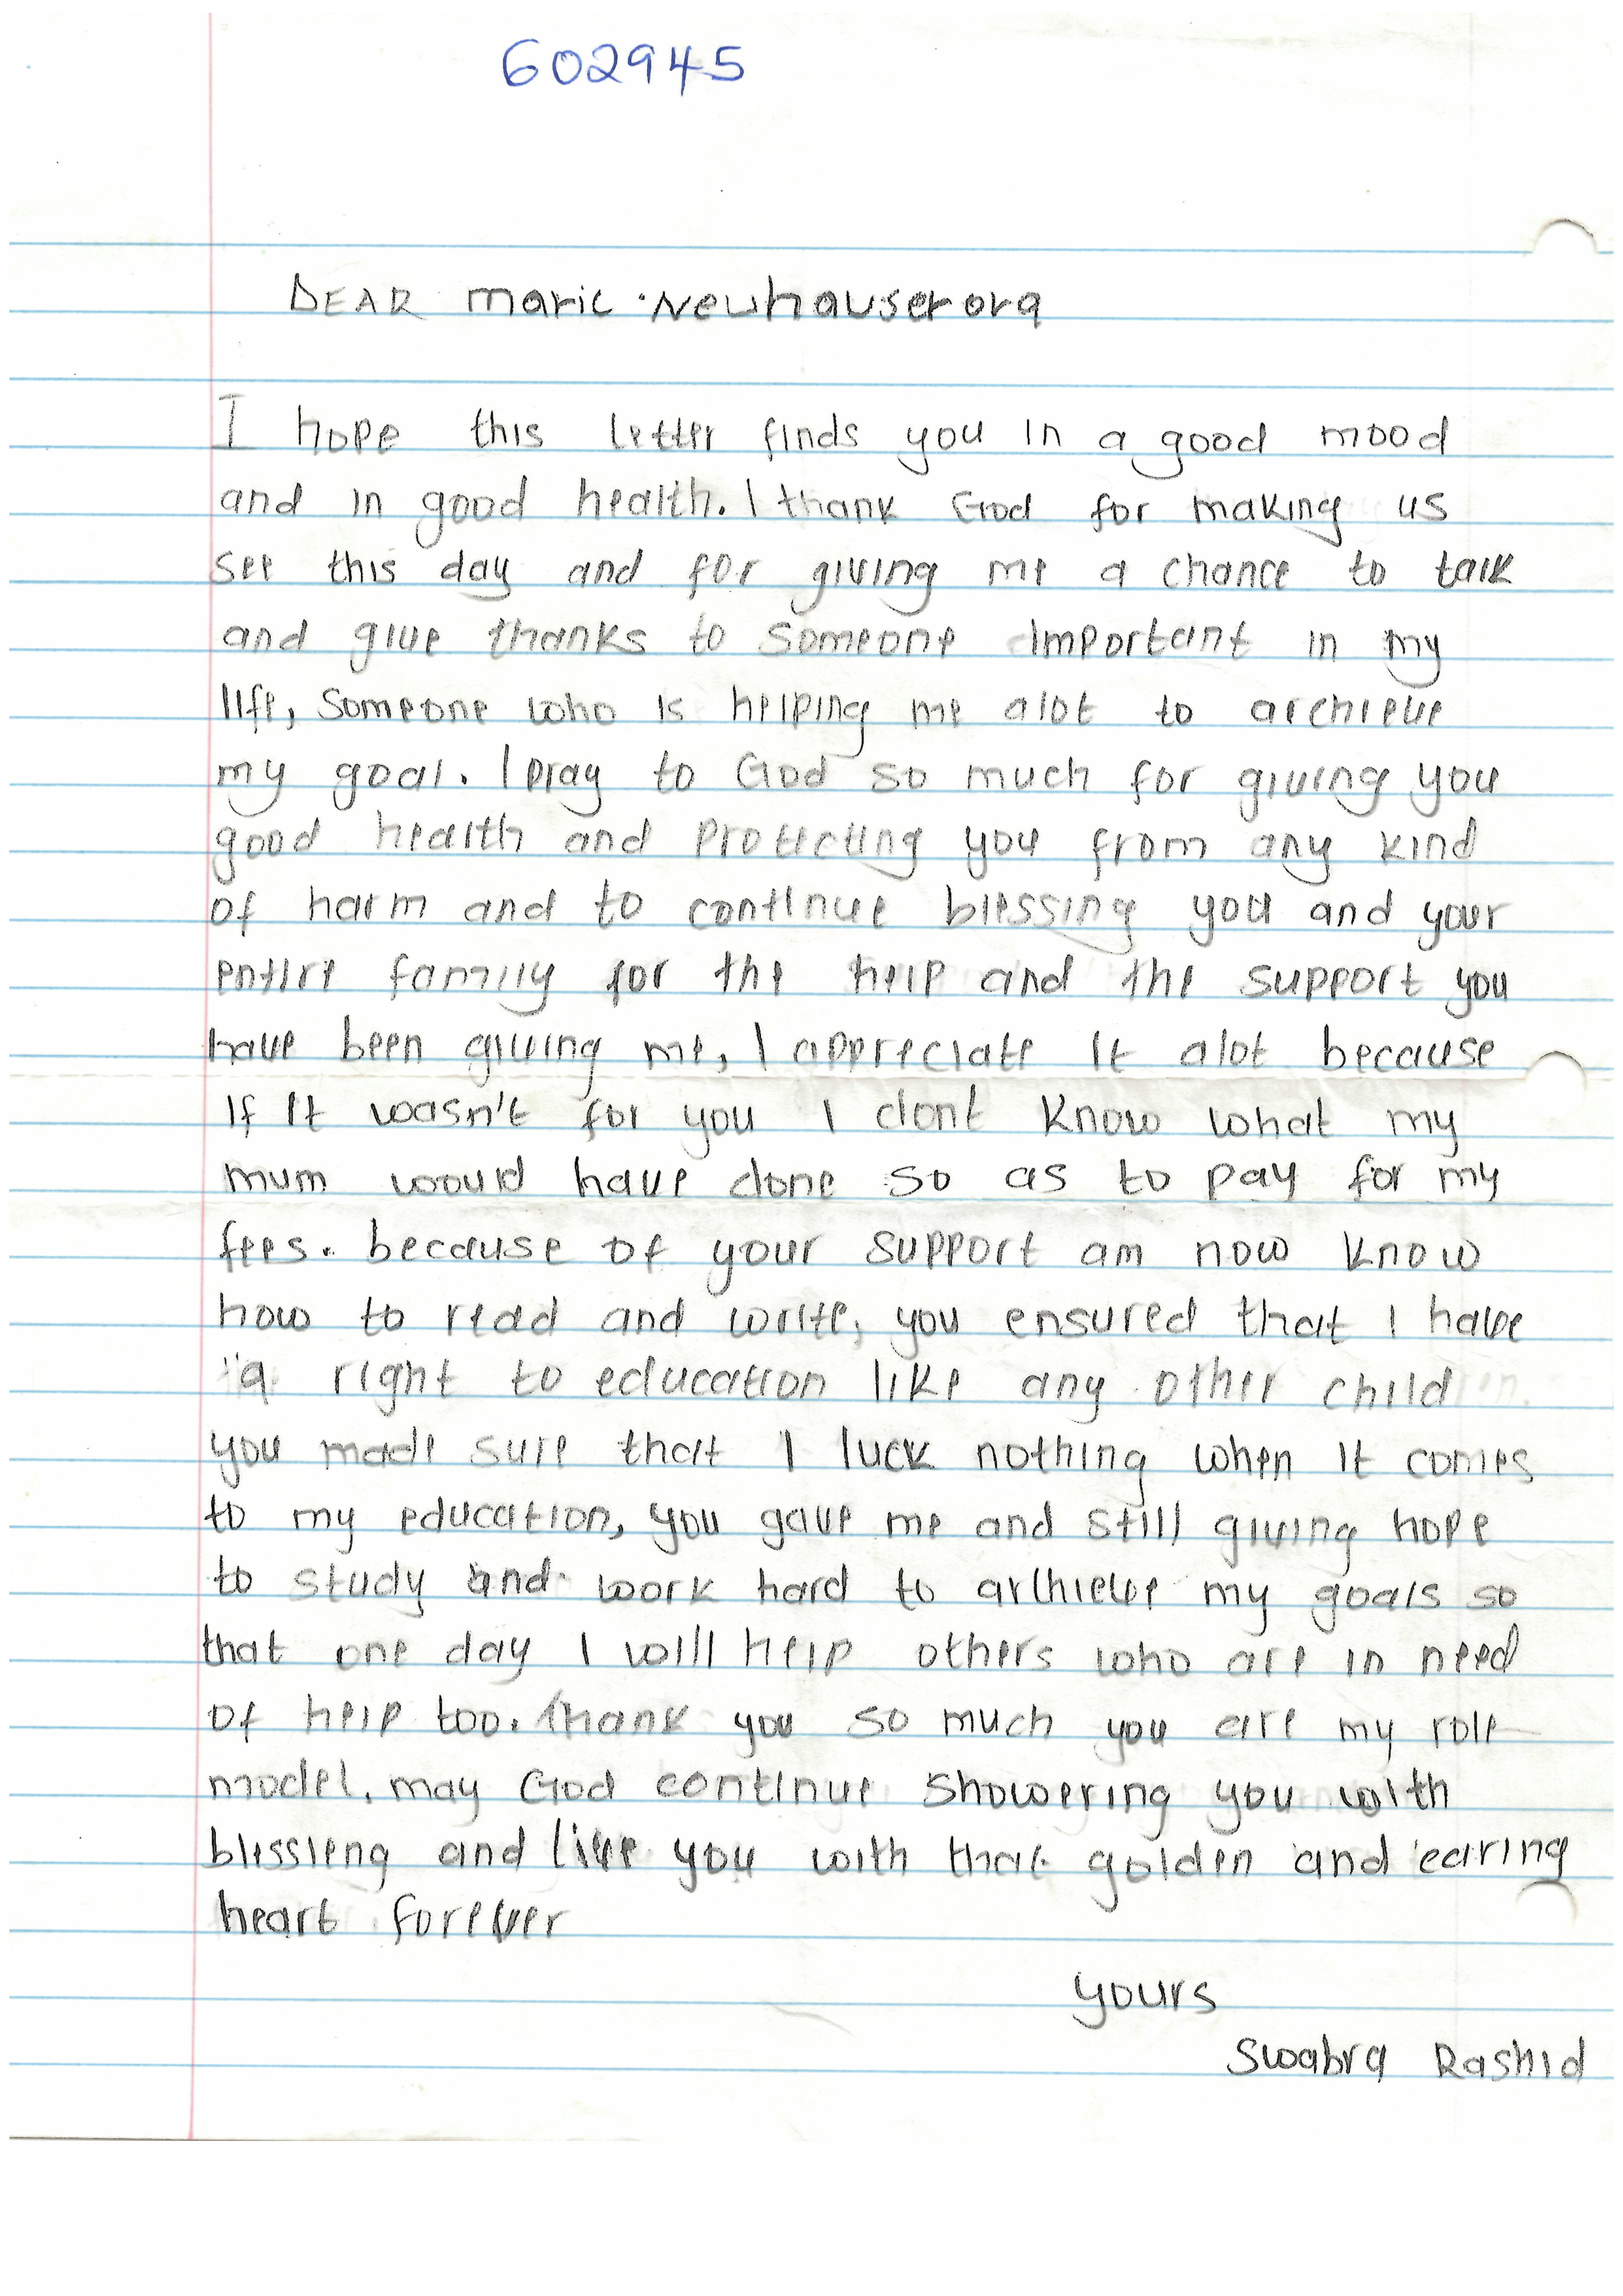 602945
DEAR maric Neuhauser org
I hope this letter finds you in a good mood
and in good health. I thank God for making us
see this day and for giving me a chance to talk
and give thanks to someone important in my
life, someone who is helping me alot to archieve
my goal. I pray to God so much for giving you
good health and protecting you from any kind
of harm and to continue blessing you and your
entire family for the help and the support you
have been giving me, I appreciate it alot because
if it wasn't for you I dont know what my
mum would have done so as to pay for my
fees. because of your support am now know
how to read and write, you ensured that I have
a right to education like any other child
you made sure that I luck nothing when it comes
to my education, you gave me and still giving hope
to study and work hard to archieve my goals so
that one day I will help others who are in need
of help too. thank you so much you are my role
model. may God continue showering you with
blissieng and live you with that golden and caring
heart forever
yours
Swabra Rashid